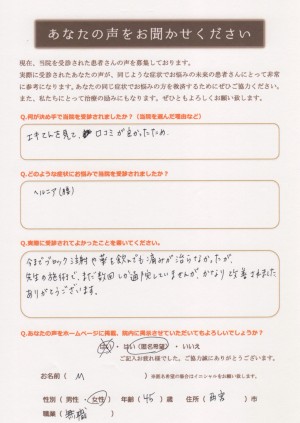 あなたの声をお聞かせください
現在、当院を受診された患者さんの声を募集しております。
実際に受診されたあなたの声が、同じような症状でお悩みの未来の患者さんにとって非常
に参考になります。あなたの同じ症状でお悩みの方を救済するためにぜひご協力ください。
また、私たちにとって治療の励みにもなります。ぜひともよろしくお願い致します。
Q.何が決め手で当院を受診されましたか?(当院を選んだ理由など)
エキテンを見て、口コミが良かったため。
Q.どのような症状にお悩みで当院を受診されましたか?
ヘルニア(腰)
Q.実際に受診されてよかったことを書いてください。
今までブロック注射や薬を飲んでも痛みが治らなかったが、
先生の施術で、まだ数回しか通院していませんが、かなり改善されました
ありがとうございます。
Q.あなたの声をホームページに掲載、院内に掲示させていただいてもよろしいでしょうか?
はい ・ はい(匿名希望) ・ いいえ
ご記入お疲れ様でした。ご協力誠にありがとうございます。
お名前( M )
※匿名希望の場合はイニシャルをお願い致します。
性別(男性・女性) 年齢(45)歳 住所(西宮)市
職業(無職)